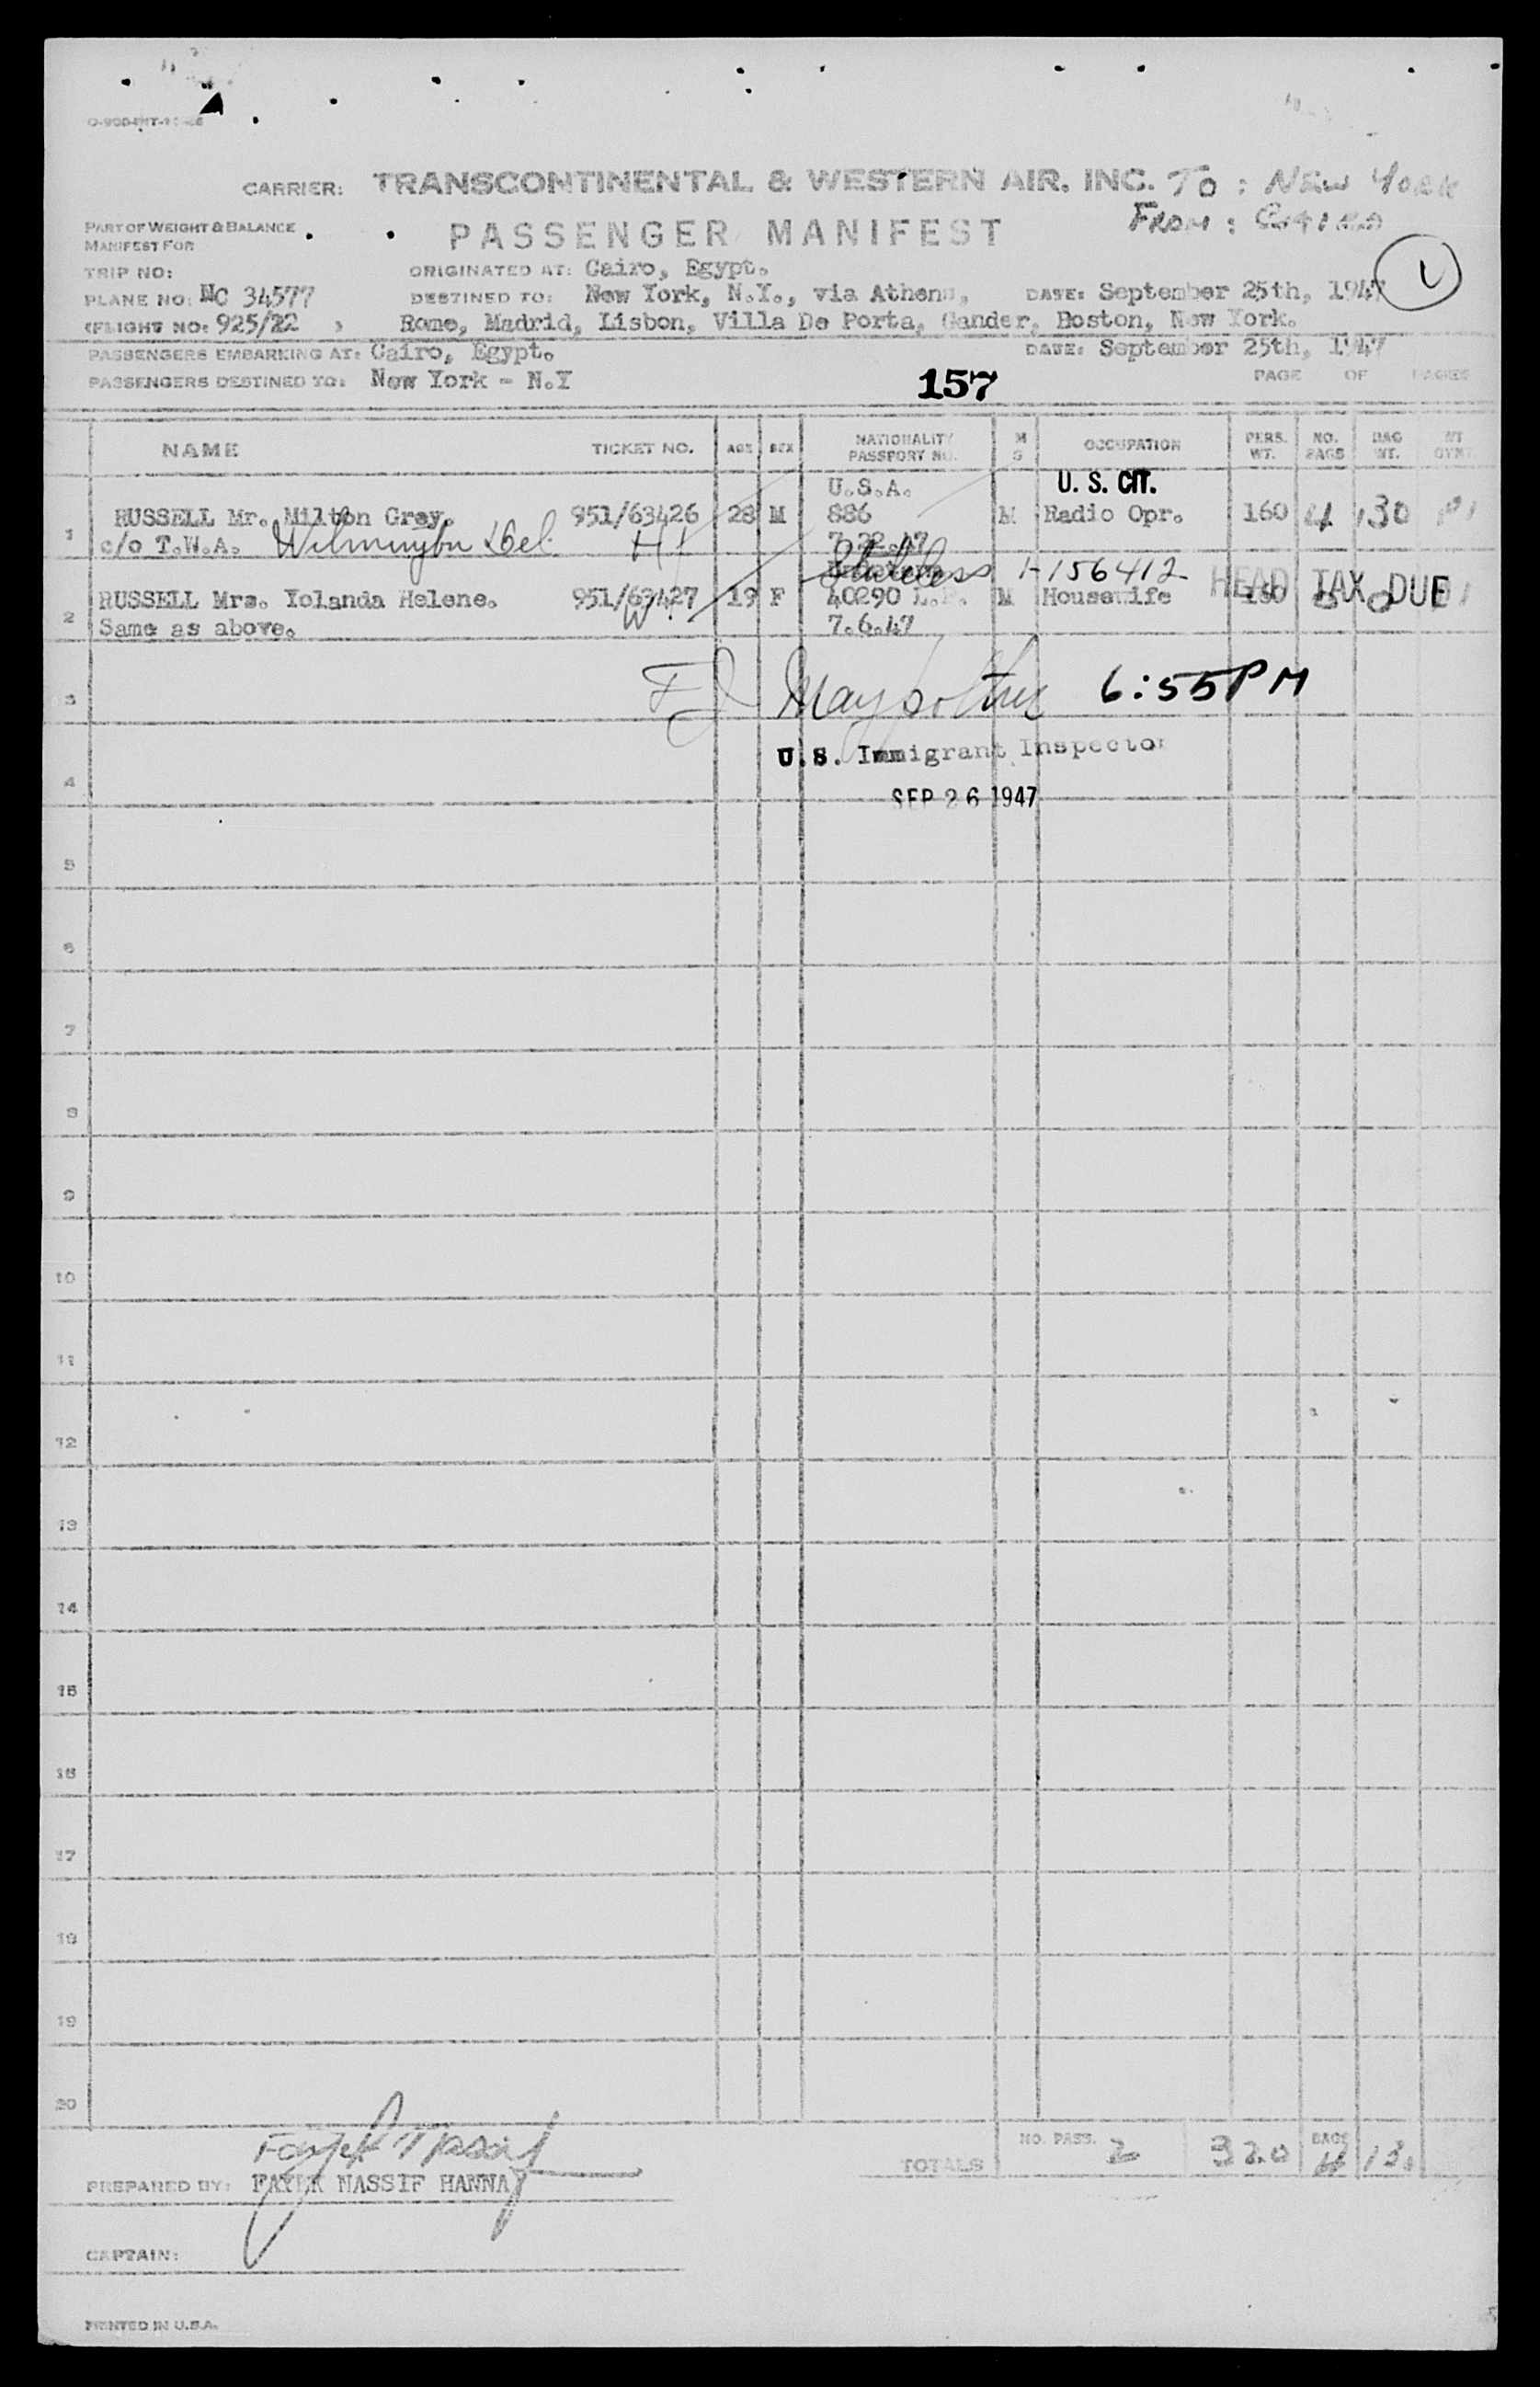 CARRIER: TRANSCONTINENTAL & WESTERN AIR. INC. TO: NEW YORK
PASSENGER MANIFEST FROM: CAIRO
PART OF WEIGHT & BALANCE
MANIFEST FOR
TRIP NO: ORIGINATED AT: Cairo, Egypt.
PLANE NO: NC 34577 DESTINED TO: New York, N.Y., via Athens, DATE: September 25th, 1947
(FLIGHT NO: 925/22 ) Rome, Madrid, Lisbon, Villa De Porta, Gander, Boston, New York.
PASSENGERS EMBARKING AT: Cairo, Egypt. DATE: September 25th, 1947
PASSENGERS DESTINED TO: New York - N.Y 157 PAGE OF PAGES
NAME TICKET NO. AGE SEX NATIONALITY PASSPORT NO. M S OCCUPATION PERS. WT. NO. BAGS BAG WT.
U.S.A. U. S. CIT.
1 RUSSELL Mr. Milton Gray. 951/63426 28 M 886 M Radio Opr. 160 4 130
c/o T.W.A. Wilmington Del. H 7.22.47
Stateless 1-156412 HEAD TAX DUE
2 RUSSELL Mrs. Yolanda Helene. 951/63427 19 F 40290 L.P. M Housewife 160
Same as above. W. 7.6.47
3 6:55 PM
U.S. Immigrant Inspector
4 SEP 26 1947
5
6
7
8
9
10
11
12
13
14
15
16
17
18
19
20
TOTALS NO. PASS. 2 320 BAGS 4
PREPARED BY: FAYEK NASSIF HANNA
CAPTAIN:
PRINTED IN U.S.A.